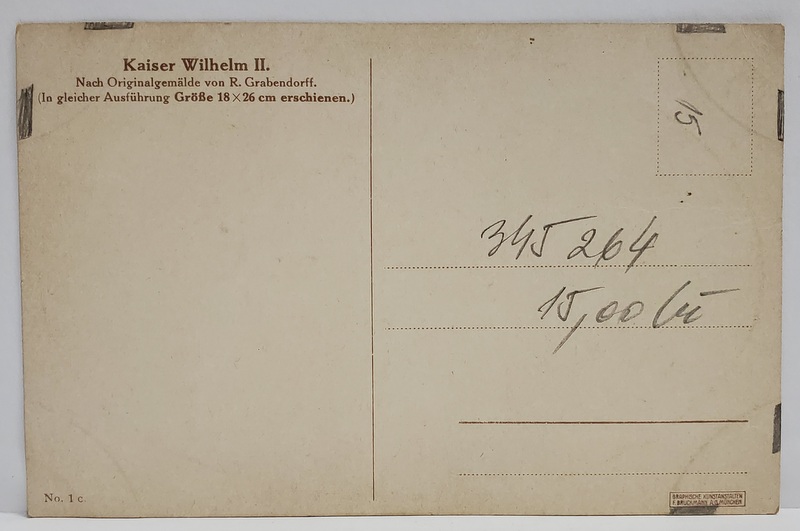 Kaiser Wilhelm II.
Nach Originalgemälde von R. Grabendorff.
(In gleicher Ausführung Größe 18×26 cm erschienen.)
15
345 264
15,00
No. 1 c.
GRAPHISCHE KUNSTANSTALTEN
F. BRUCKMANN A.G. MÜNCHEN